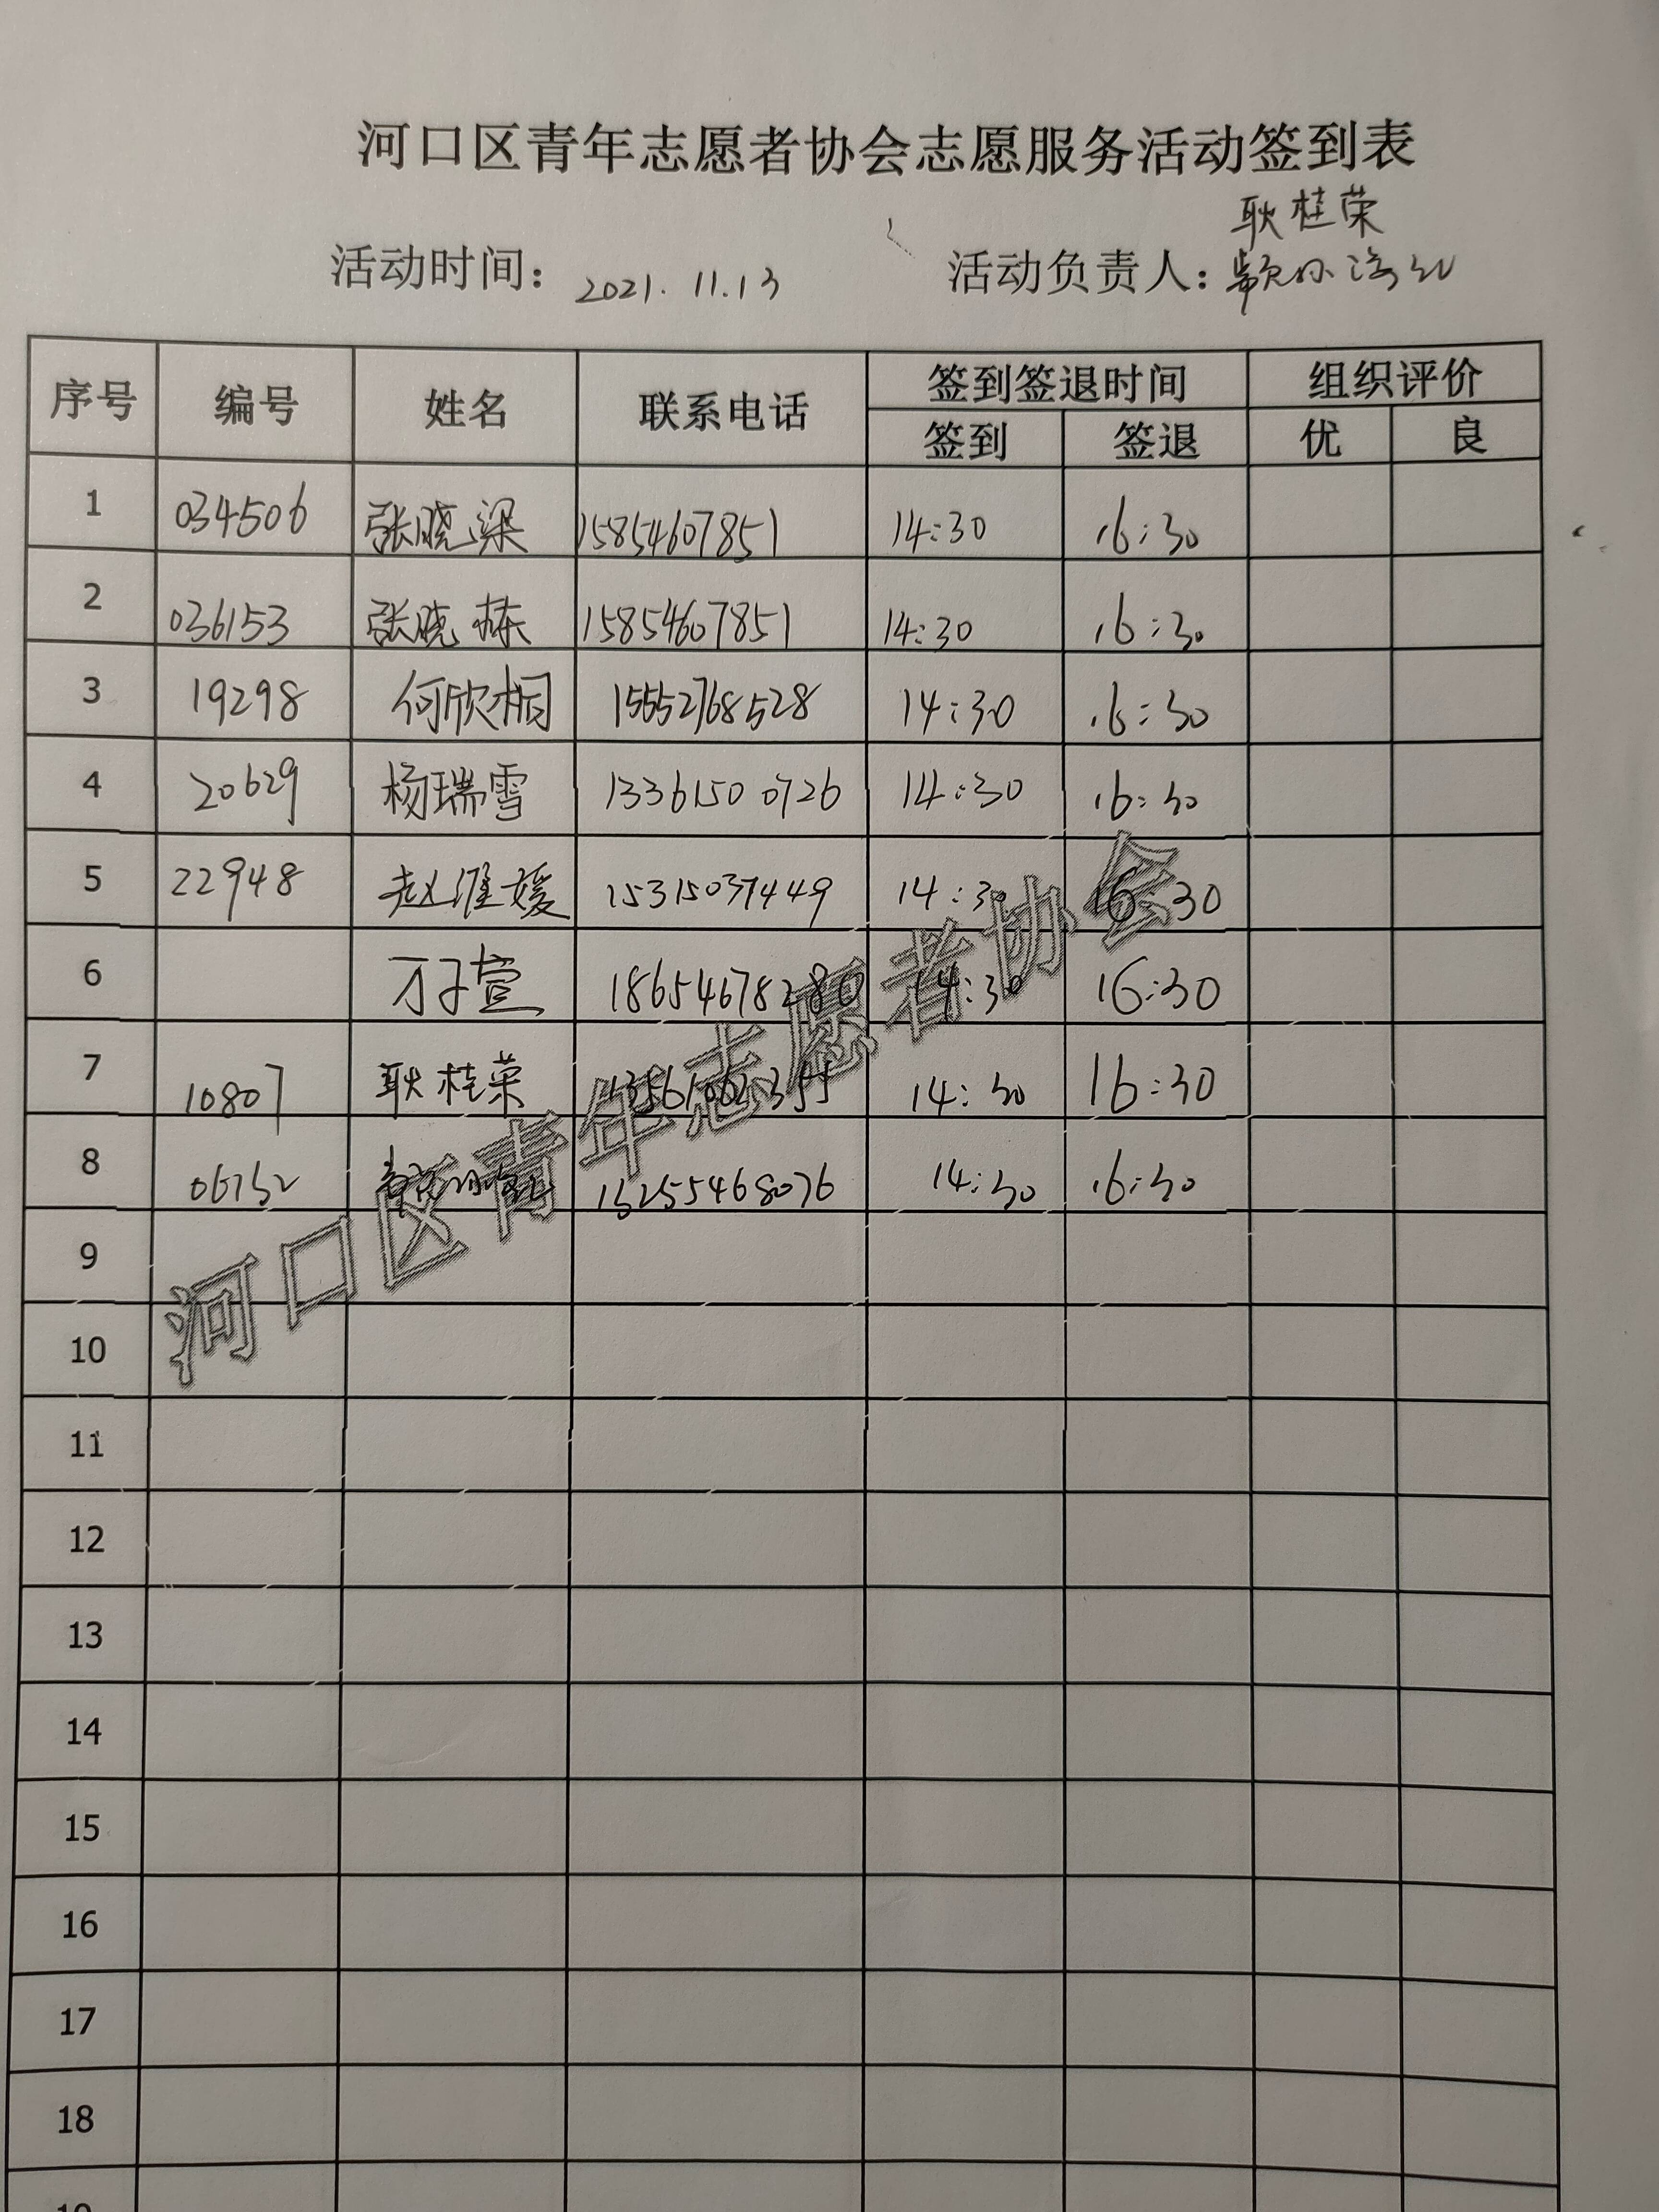 河口区青年志愿者协会志愿服务活动签到表
耿桂荣
活动时间：2021.11.13 活动负责人：
序号 编号 姓名 联系电话 签到签退时间 组织评价
签到 签退 优 良
1 034506 张晓梁 15854607851 14:30 16:30
2 036153 张晓栋 15854607851 14:30 16:30
3 19298 何欣桐 15552768528 14:30 16:30
4 20629 杨瑞雪 13361500726 14:30 16:30
5 22948 赵淮媛 15315037449 14:30 16:30
6 万子萱 18654678280 14:30 16:30
7 10807 耿桂荣 14:30 16:30
8 06752 13255468076 14:30 16:30
9
10
11
12
13
14
15
16
17
18
河口区青年志愿者协会